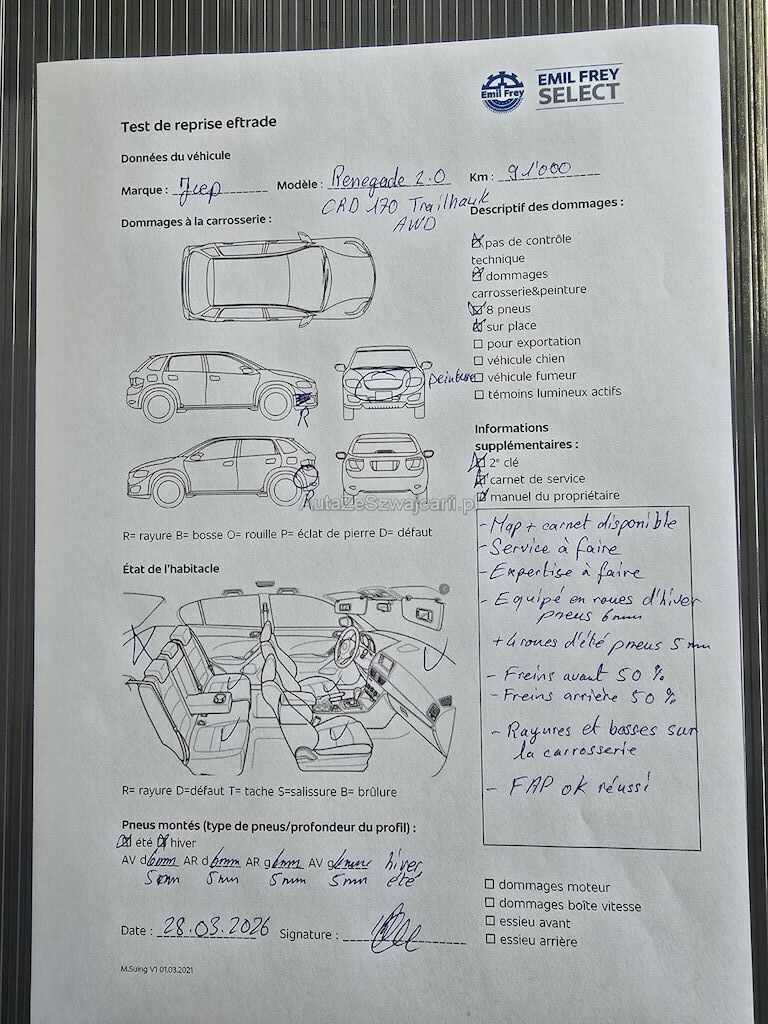 Emil Frey
EMIL FREY
SELECT
Test de reprise eftrade
Données du véhicule
Marque : Jeep Modèle : Renegade 2.0 Km : 91'000
CRD 170 Trailhawk
AWD
Dommages à la carrosserie :
Descriptif des dommages :
pas de contrôle
technique
dommages
carrosserie&peinture
8 pneus
sur place
pour exportation
véhicule chien
véhicule fumeur
témoins lumineux actifs
peinture
R
R
Informations
supplémentaires :
2e clé
carnet de service
manuel du propriétaire
AutaZeSzwajcarii.pl
R= rayure B= bosse O= rouille P= éclat de pierre D= défaut
- Map + carnet disponible
- Service à faire
- Expertise à faire
- Equipé en roues d'hiver
pneus 6mm
+ 4 roues d'été pneus 5 mm
- Freins avant 50 %
- Freins arrière 50 %
- Rayures et bosses sur
la carrosserie
- FAP ok réussi
État de l'habitacle
R= rayure D=défaut T= tache S=salissure B= brûlure
Pneus montés (type de pneus/profondeur du profil) :
été hiver
AV d 6mm AR d 6mm AR g 6mm AV g 6mm hiver
5mm 5mm 5mm 5mm été
dommages moteur
dommages boîte vitesse
essieu avant
essieu arrière
Date : 28.03.2026 Signature :
M.Suing V1 01.03.2021